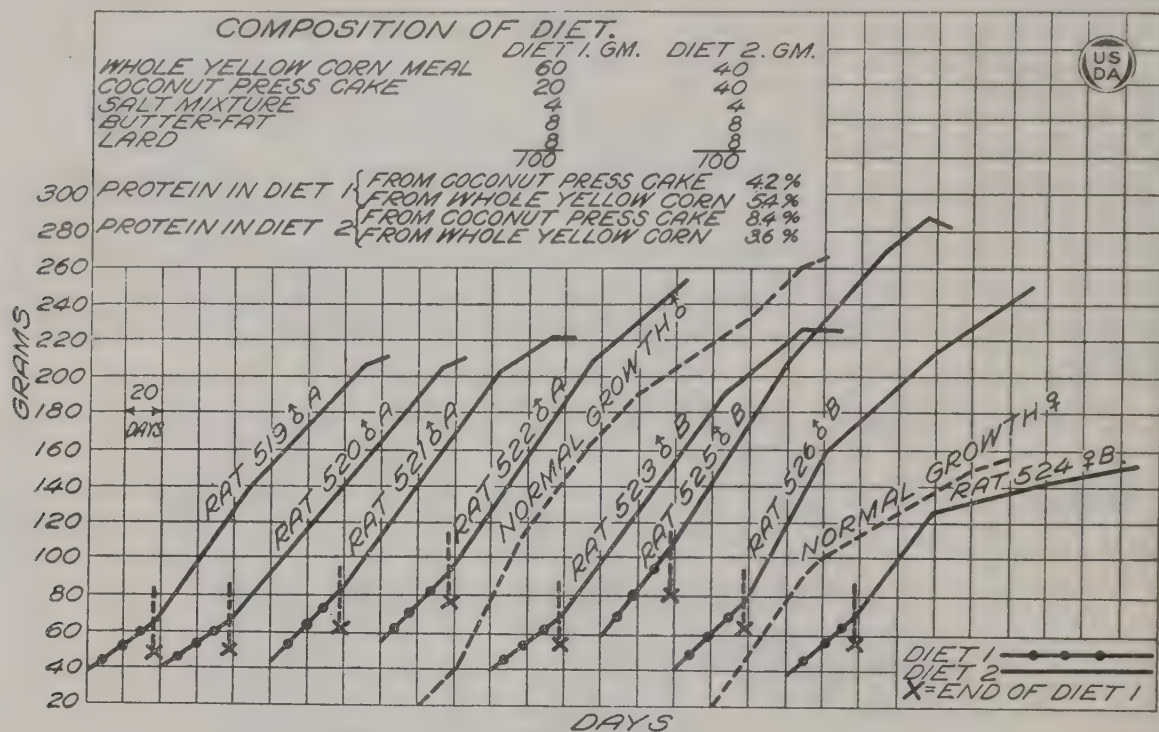 COMPOSITION OF DIET.
DIET 1. GM. DIET 2. GM.
WHOLE YELLOW CORN MEAL 60 40
COCONUT PRESS CAKE 20 40
SALT MIXTURE 4 4
BUTTER-FAT 8 8
LARD 8 8
100 100
PROTEIN IN DIET 1 { FROM COCONUT PRESS CAKE 4.2 %
FROM WHOLE YELLOW CORN 5.4 %
PROTEIN IN DIET 2 { FROM COCONUT PRESS CAKE 8.4 %
FROM WHOLE YELLOW CORN 3.6 %
US
DA
GRAMS
300
280
260
240
220
200
180
160
140
120
100
80
60
40
20
20
DAYS
RAT 519 ♂ A
RAT 520 ♂ A
RAT 521 ♂ A
RAT 522 ♂ A
NORMAL GROWTH ♂
RAT 523 ♂ B
RAT 525 ♂ B
RAT 526 ♂ B
NORMAL GROWTH ♀
RAT 524 ♀ B
DIET 1
DIET 2
X = END OF DIET 1
DAYS